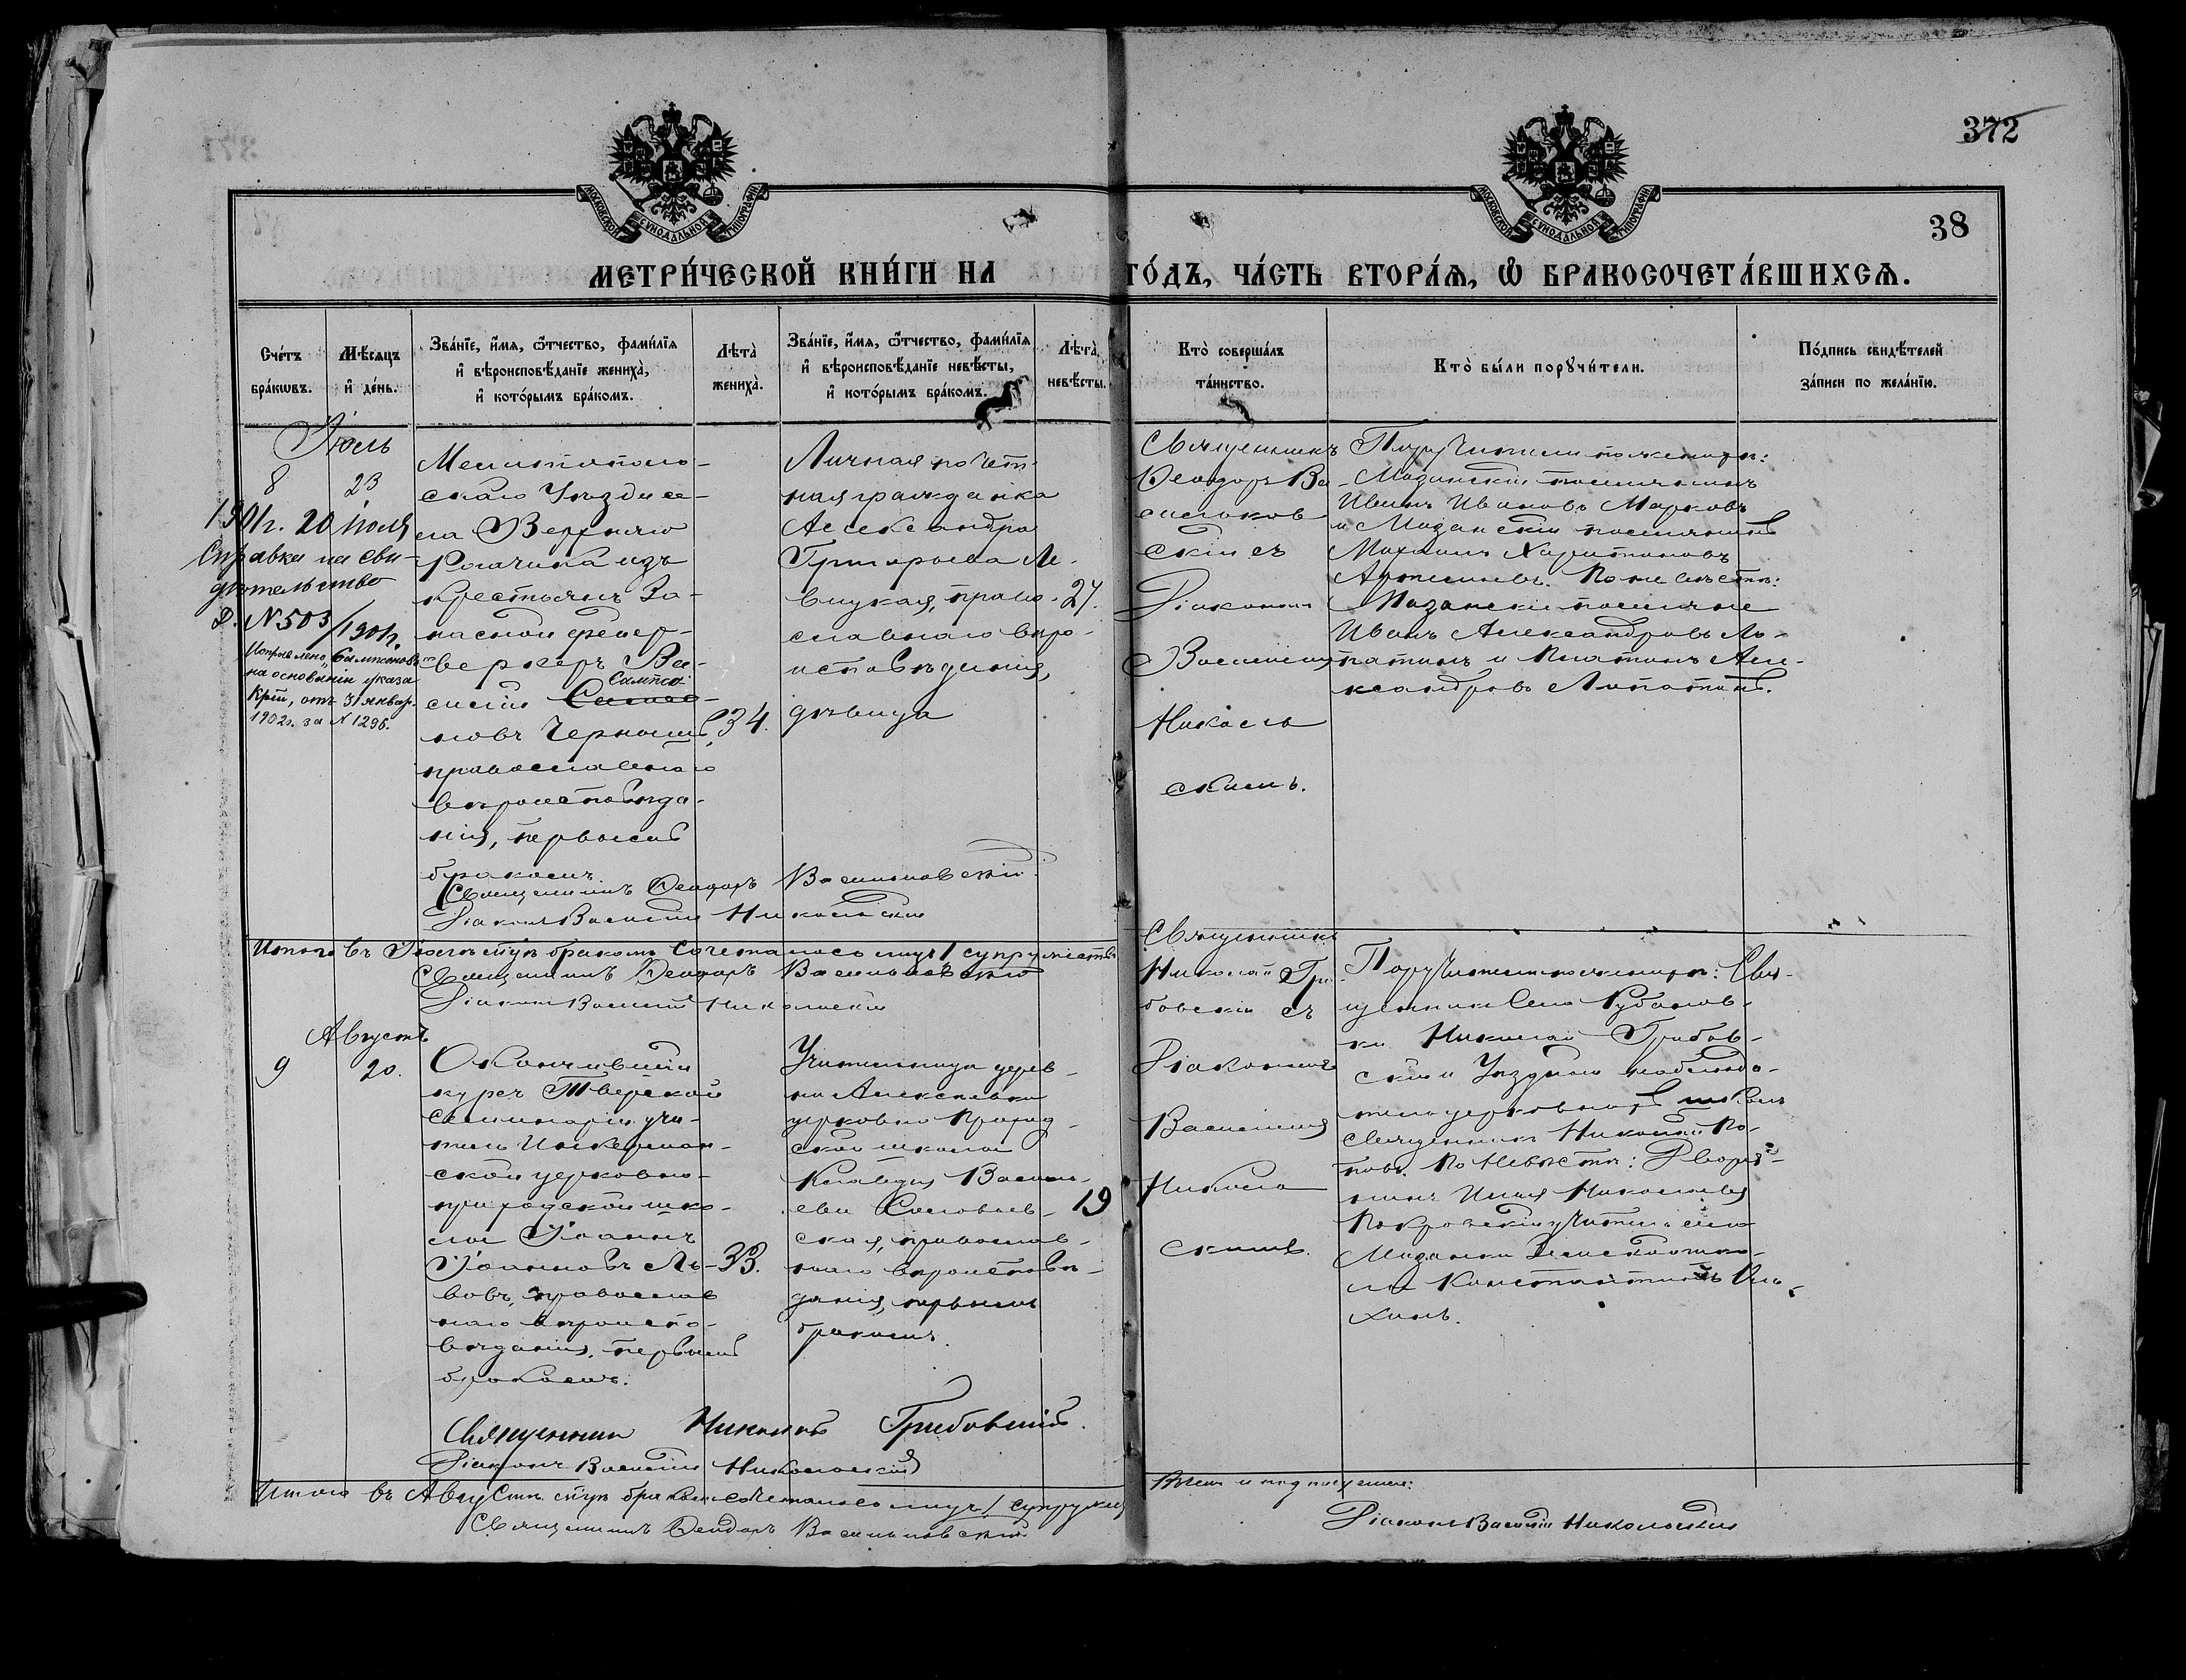 372
38
МЕТРИ́ЧЕСКОЙ КНИ́ГИ НА ГО́ДЪ, ЧА́СТЬ ВТОРА́Ѧ, Ѽ БРАКОСОЧЕТА́ВШИХСѦ.
МОСКОВСКОЙ СѴНОДАЛЬНОЙ ТИПОГРАФІИ
МОСКОВСКОЙ СѴНОДАЛЬНОЙ ТИПОГРАФІИ
Сче́тъ
бра́кѡвъ.
Мѣ́сяцъ
и҆ де́нь.
Зва́нїе, и҆́мя, ѻ҆́тчество, фами́лїя
и҆ вѣроисповѣ́данїе жениха̀,
и҆ кото́рымъ бра́комъ.
Лѣ́та̀
жениха̀.
Зва́нїе, и҆́мя, ѻ҆́тчество, фами́лїя
и҆ вѣроисповѣ́данїе невѣ́сты,
и҆ кото́рымъ бра́комъ.
Лѣ́та̀
невѣ́сты.
Кто̀ соверша́лъ
та́инство.
Кто̀ бы́ли порꙋчи́тели.
По́дпись свидѣ́телей
за́писи по жела́нїю.
Іюль
8
23
1901г. 20 Іюля
Справка на сви-
дѣтельство
Д. N 503/1901г.
Исправлено „Сампсоновъ“
на основаніи указа
Крт, отъ 31 январ.
1902г. за N 1296.
Мелитополь-
скаго Уѣзда се-
ла Верхняго
Рогачика изъ
крестьянъ За-
пасной фейер-
веркеръ Ва-
силій Сампсо-
новъ Черныш
православнаго
вѣроисповѣда-
нія, первымъ
бракомъ
34.
Личная почет-
ная гражданка
Александра
Григорьева Ле-
вицкая, право-
славнаго вѣро-
исповѣданія,
дѣвица
27.
Священникъ
Ѳеодоръ Ва-
сильков-
скій съ
Діакономъ
Василіемъ
Николь
скимъ.
Поручители по женихѣ:
Мазанскій поселянинъ
Иванъ Ивановъ Марковъ
и Мазанскій поселянинъ
Михаилъ Харитоновъ
Артемьевъ. По невѣстѣ:
Мазанскіе поселяне
Иванъ Александровъ Ло-
патинъ и Платонъ Але-
ксандровъ Лопатинъ.
Священникъ Ѳеодоръ Васильковскій
Діаконъ Василій Никольскій
Итого въ Іюлѣ мѣсяцѣ бракомъ сочеталось лицъ 1 супружество
Священникъ Ѳеодоръ Васильковскій
Діаконъ Василій Никольскій
Августъ
9
20.
Окончившій
курсъ Тверской
Семинаріи учи-
тель Инкерман-
ской церковно-
приходской шко-
лы Іоаннъ
Іоанновъ Ль-
вовъ, православ
наго вѣроиспо-
вѣданія, первымъ
бракомъ.
33.
Учительница дерев-
ни Алексѣевки
церковно Приход-
ской школы
Клавдія Василь-
ева Соловьев-
ская, православ-
наго вѣроисповѣ-
данія, первымъ
бракомъ.
19
Священникъ
Николай Гри-
бовскій съ
Діакономъ
Василіемъ
Николь
скимъ.
Поручители по женихѣ: Свя-
щенникъ села Рубанов-
ки Николай Грибов-
скій и Уѣздный наблюда-
тель церковныхъ школъ
священникъ Николай По-
повъ. По Невѣстѣ: Дворя-
нинъ Илья Николаевъ
Покровскій и учитель села
Мазанки Земской шко-
лы Константинъ
хинъ.
Священникъ Николай Грибовскій.
Діаконъ Василій Никольскій
Итого въ Августѣ мѣсяцѣ бракомъ сочеталось лицъ 1 супруж.
Священникъ Ѳеодоръ Васильковскій
Діаконъ Василій Никольскій